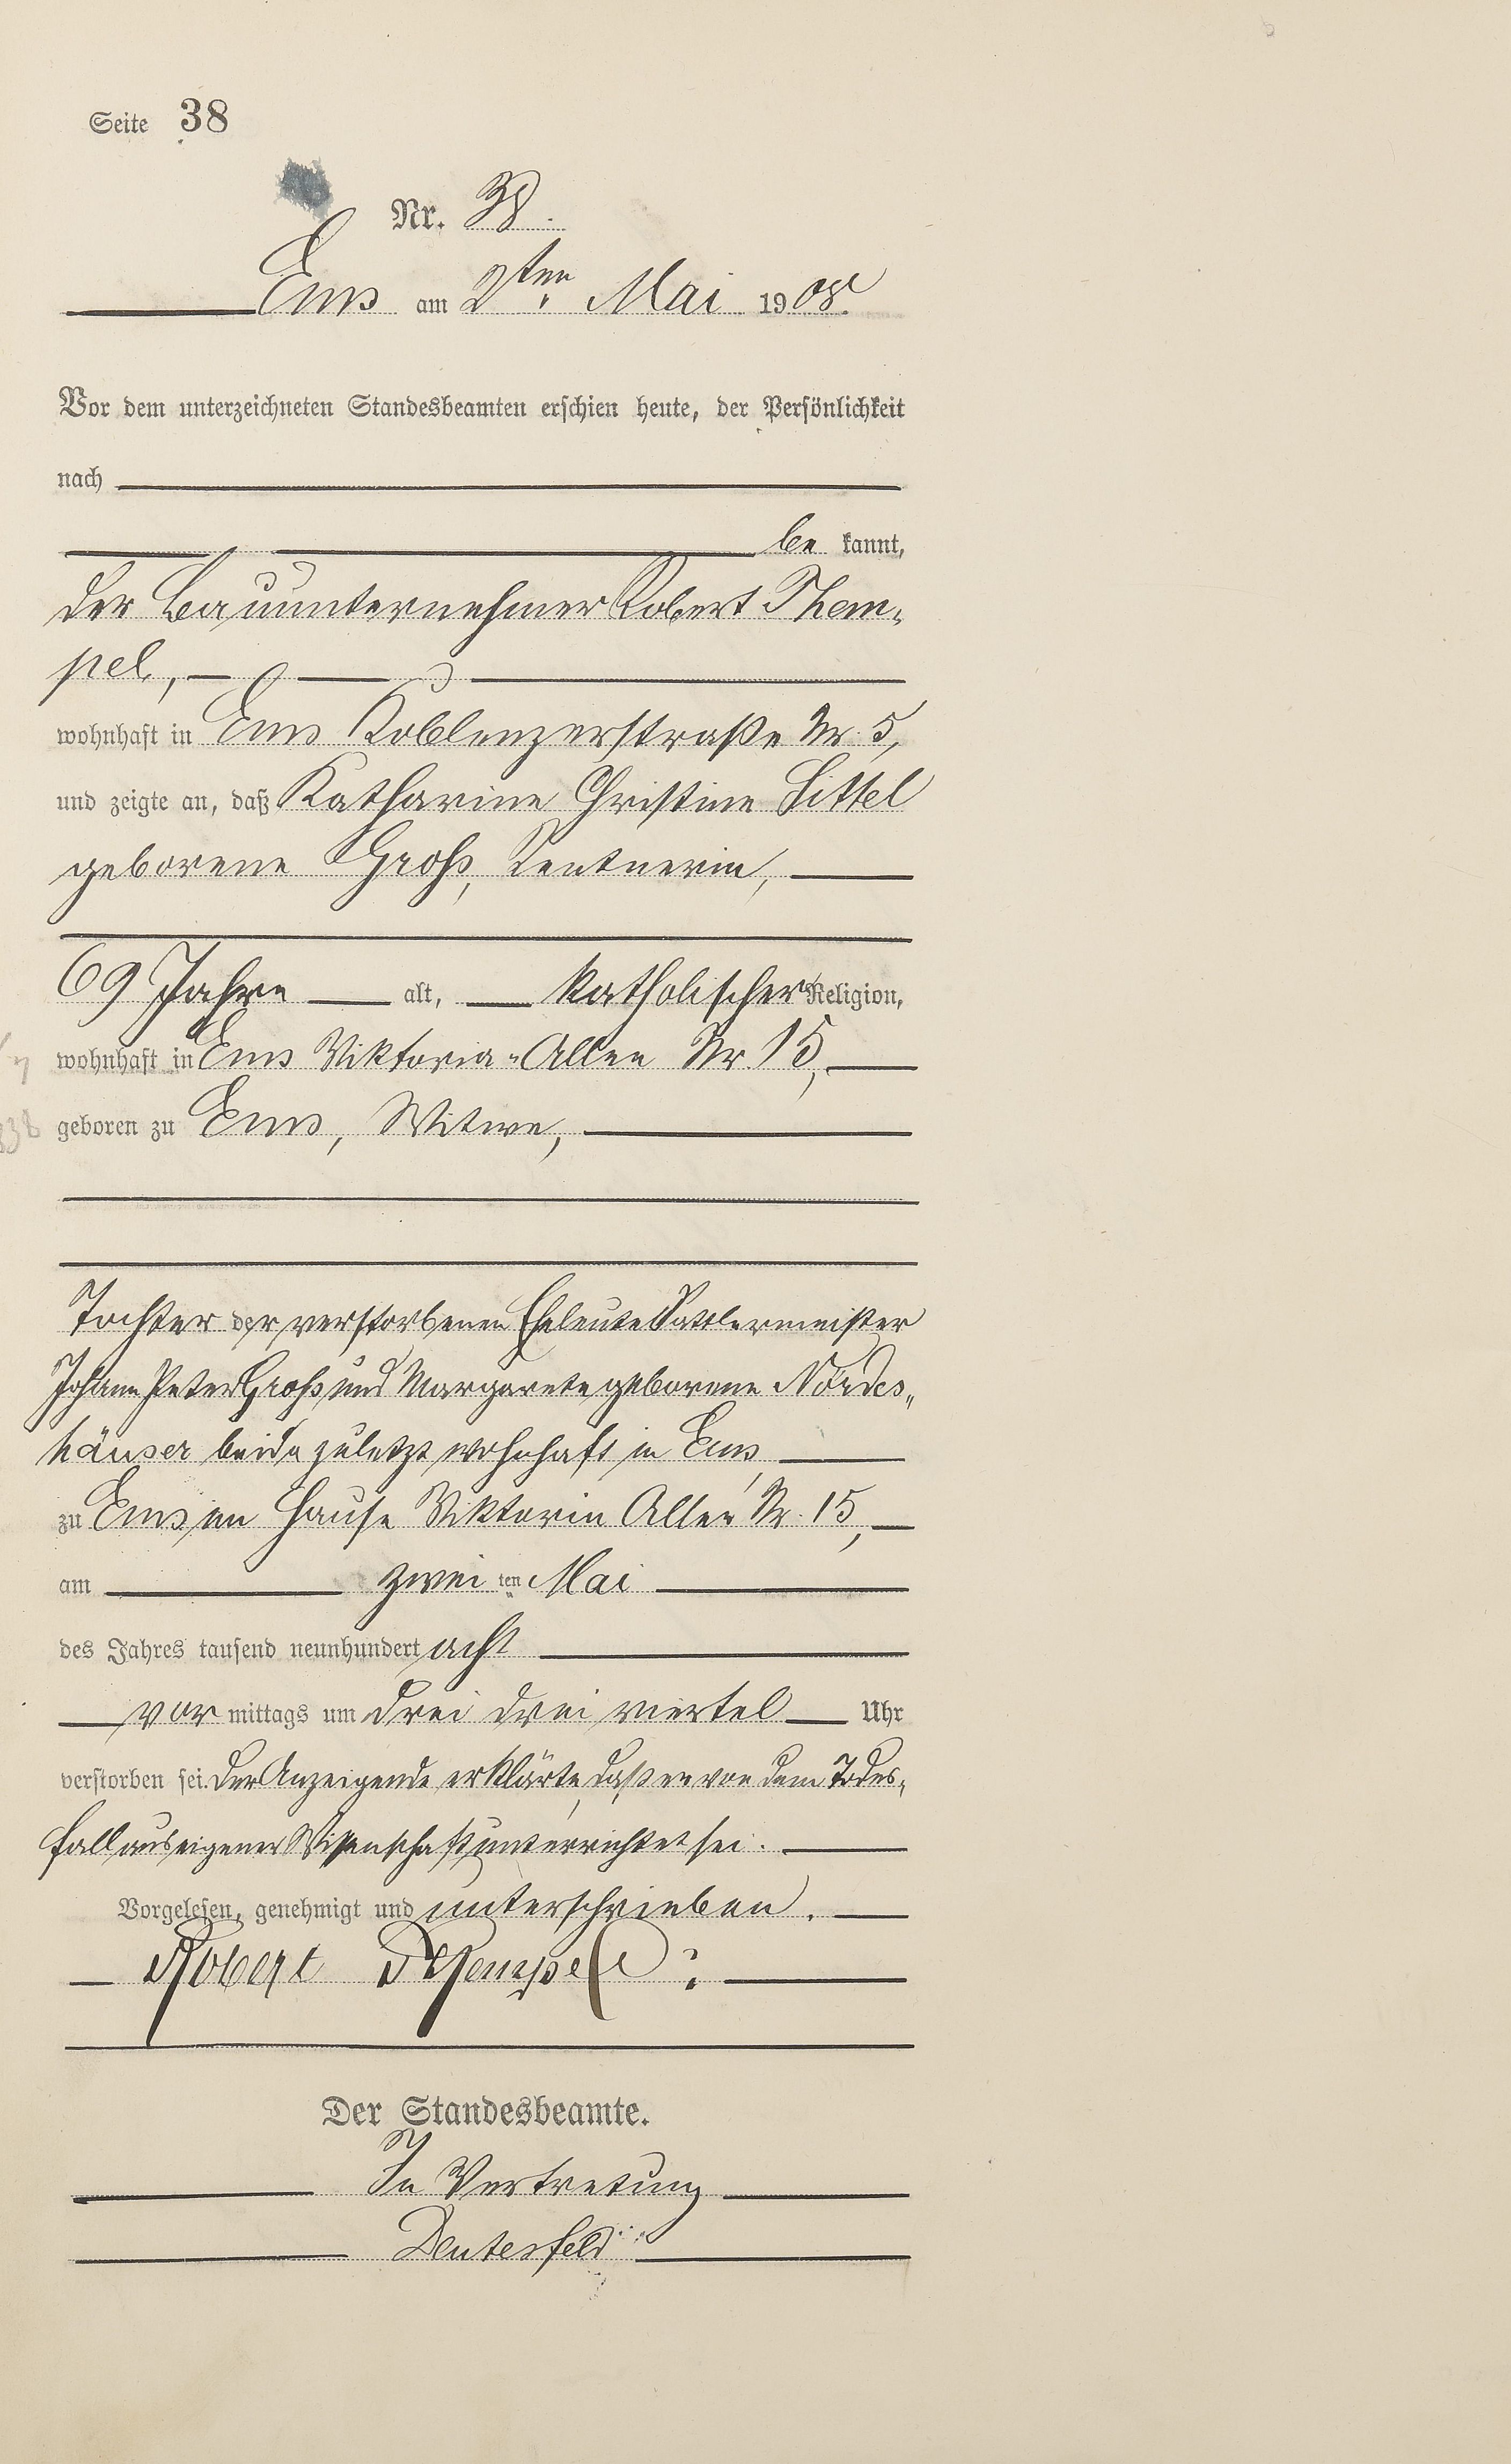 Seite 38
Nr. 38.
Ems am 2ten Mai 1908.
Vor dem unterzeichneten Standesbeamten erschien heute, der Persönlichkeit
nach
be kannt,
der Bauunternehmer Robert Them-
pel,
wohnhaft in Ems Koblenzerstraße Nr. 5,
und zeigte an, daß Katharine Christine Sittel
geborene Groß, Rentnerin,
69 Jahre alt, katholischer Religion,
wohnhaft in Ems Viktoria-Allee Nr. 15,
geboren zu Ems, Witwe,
Tochter der verstorbenen Eheleute Sattlermeister
Johann Peter Groß und Margarete geborene Nördes-
häuser beide zuletzt wohnhaft in Ems,
zu Ems im Hause Viktoria Allee Nr. 15,
am zwei ten Mai
des Jahres tausend neunhundert acht
vor mittags um drei drei viertel Uhr
verstorben sei. Der Anzeigende erklärte, daß er von dem Todes-
fall aus eigener Wissenschaft unterrichtet sei.
Vorgelesen, genehmigt und unterschrieben.
Robert Thempel:
Der Standesbeamte.
In Vertretung
Deutesfeld